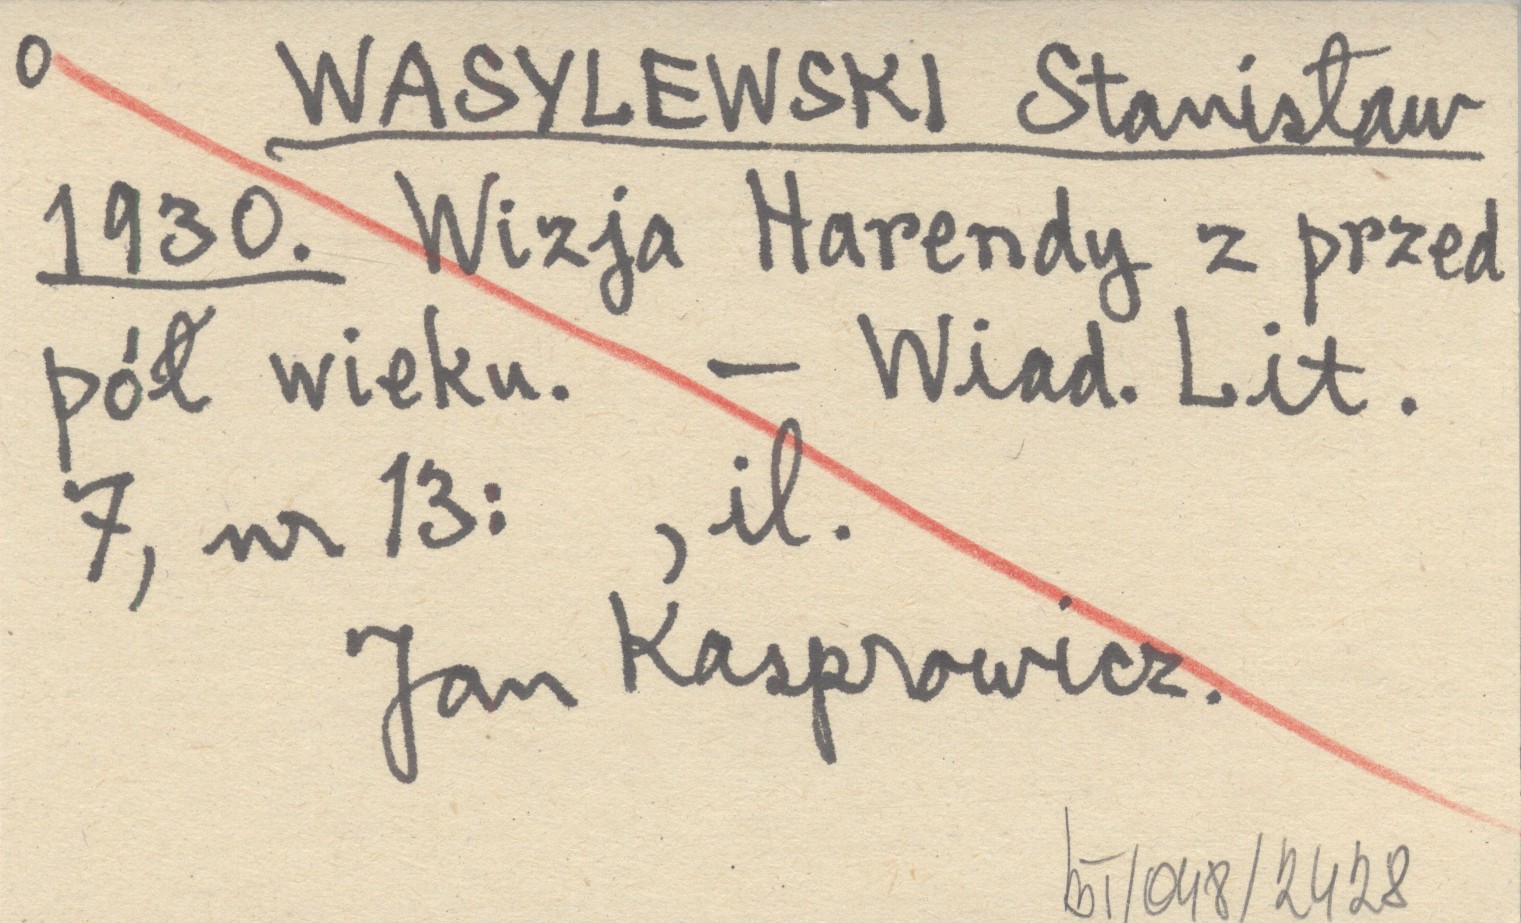 0 WASYLEWSKI Stanisław
1930. Wizja Harendy z przed
pół wieku. — Wiad. Lit.
7, nr 13: , il.
Jan Kasprowicz.
/048/2428